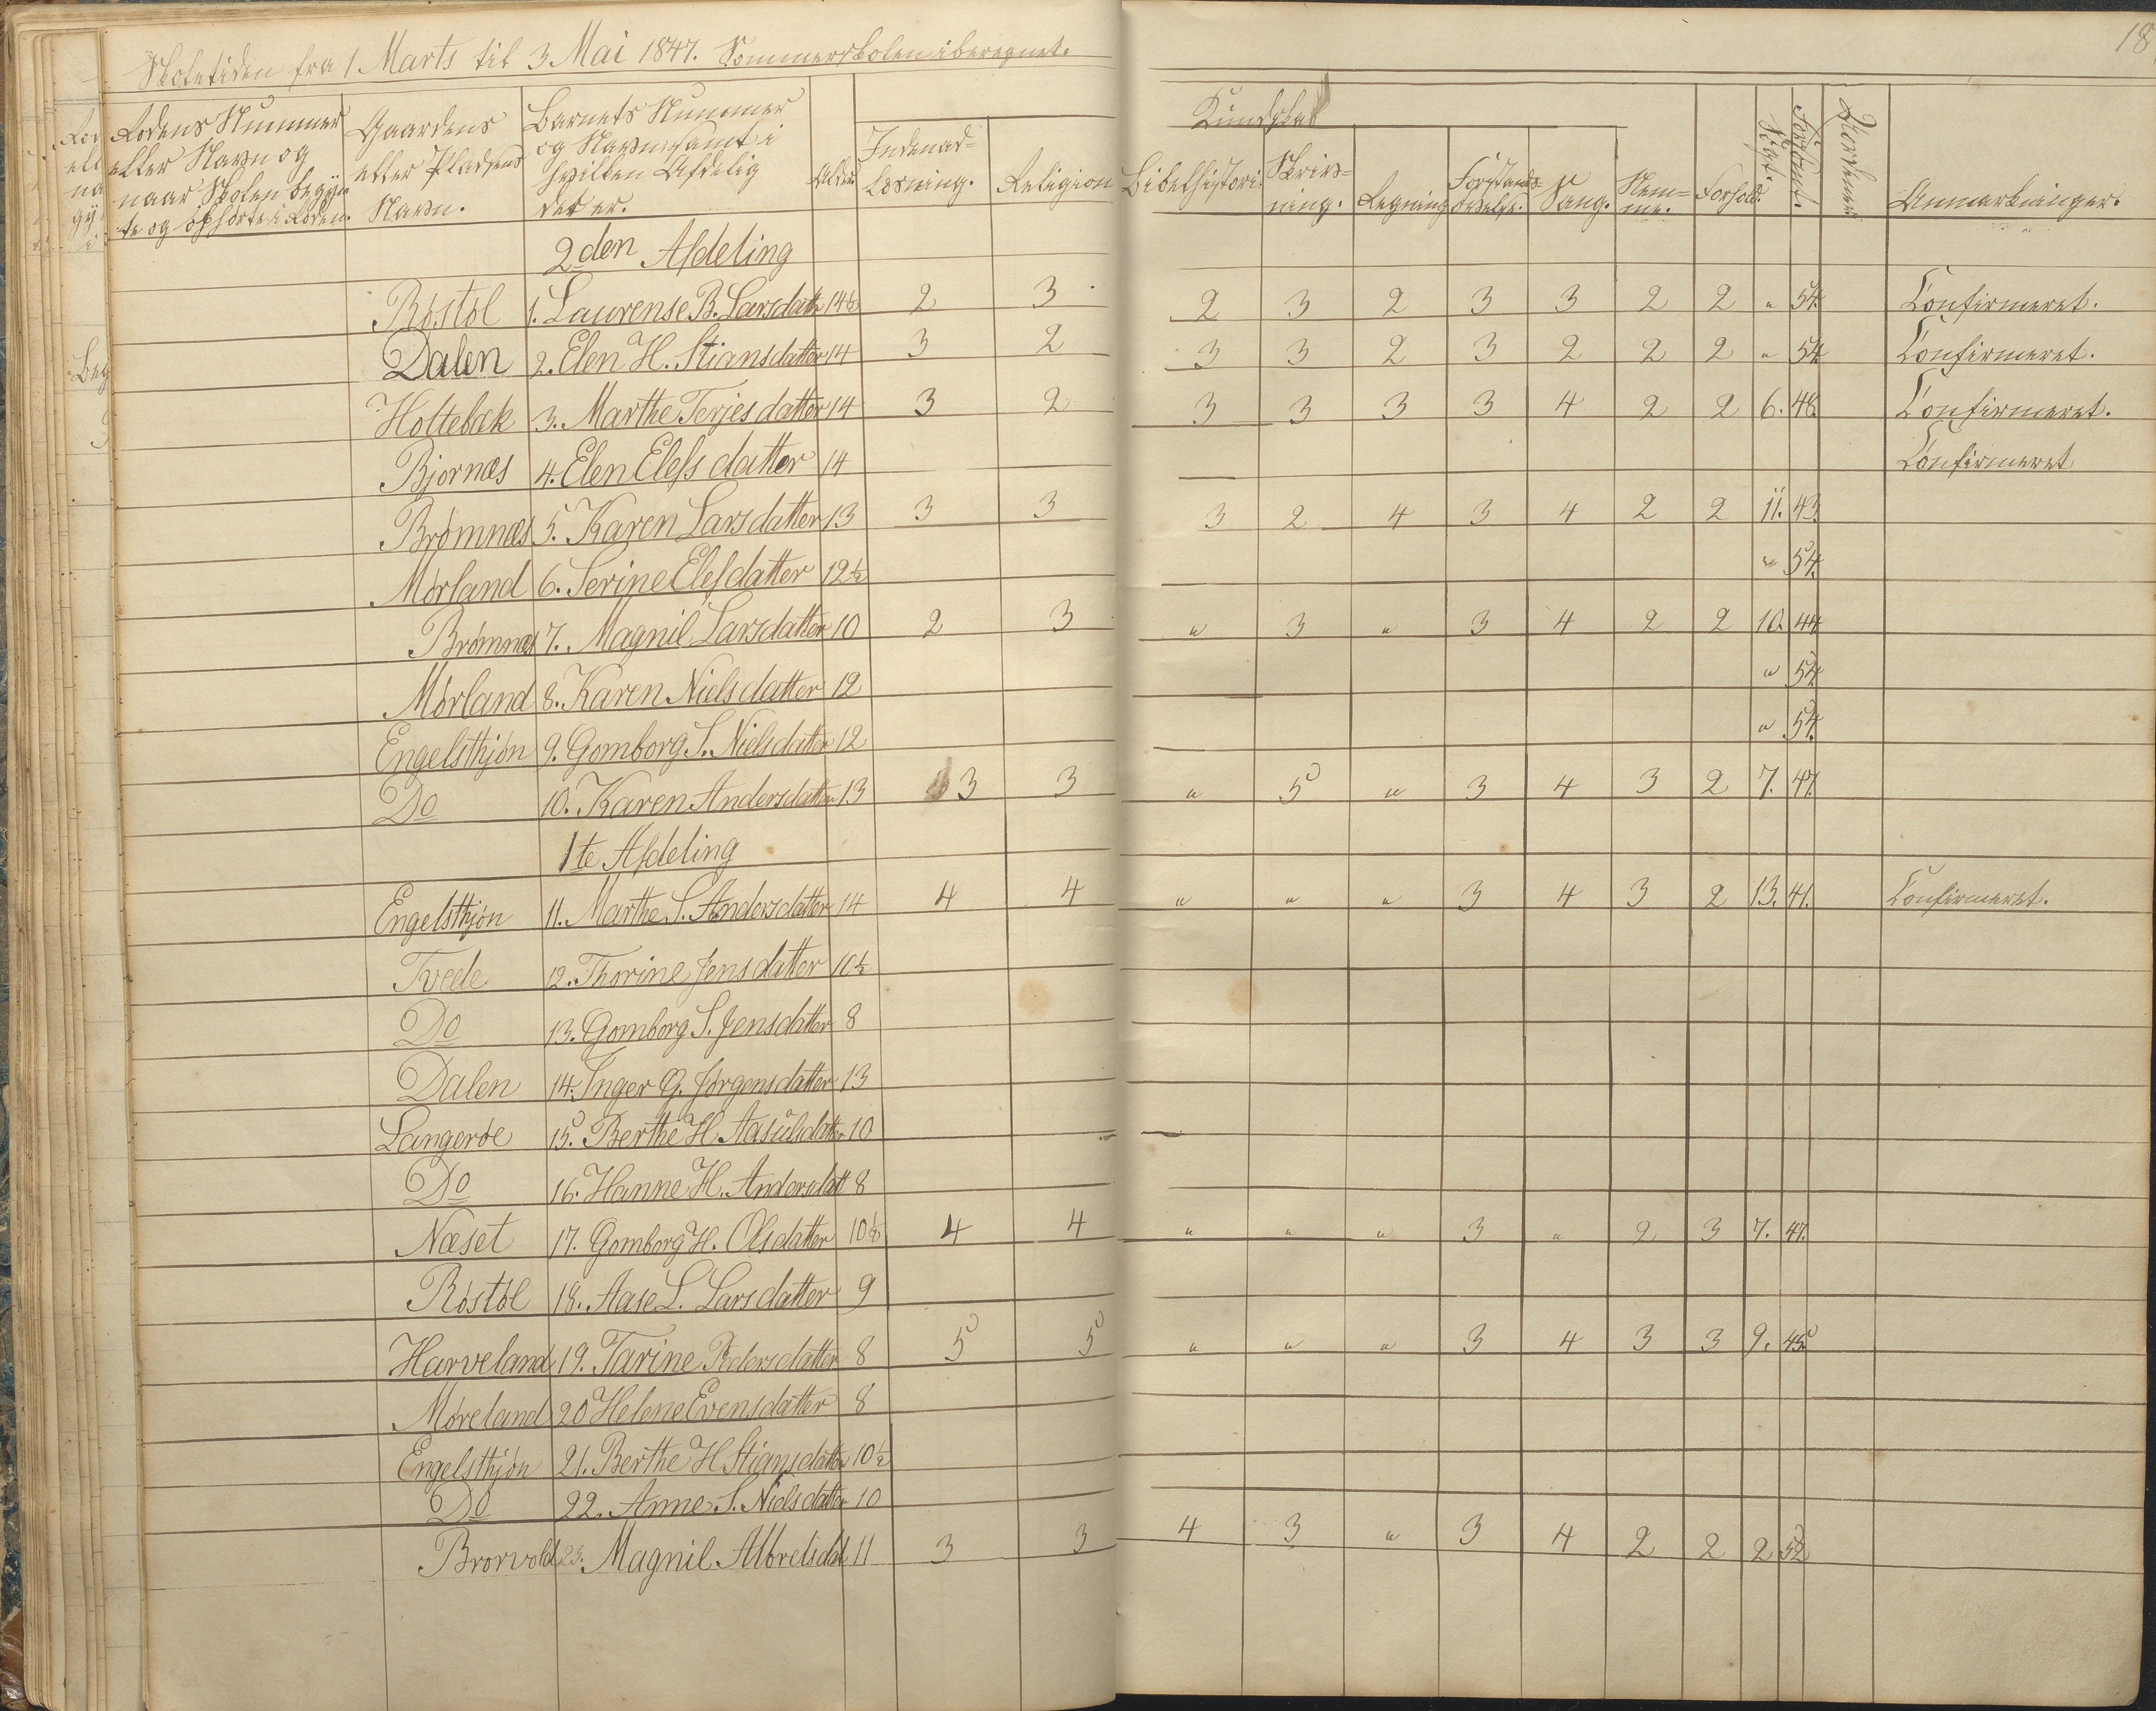 18
Skoletiden fra 1 Marts til 3 Mai 1847. Sommerskolen iberegnet.
Rodens Nummer eller Navn og naar Skolen begyn te og ophørte i Roden.
Gaardens eller Pladsens Navn.
Barnets Nummer og Navn samt i hvilken Afdelig det er.
Alder
Kundska
Indenad= Læsning.
Religion
Bibelhistori.
Skriv= ning.
Regning
Forstands Øvelse.
Sang.
Nem= me.
Forhold.
Sögt.
Forsömt.
Hvorlenge
Anmærkninger.
2den Afdeling
Röstöl 1. Laurense B. Larsdatt 14½ 2 3 2 3 2 3 3 2 2 " 54. Confirmeret.
Dalen 2. Elen H. Stiansdatter 14 3 2 3 3 2 3 2 2 2 " 54 Confirmeret.
Holtebæk 3. Marthe Terjesdatter 14 3 2 3 3 3 3 4 2 2 6. 48. Confirmeret.
Bjornæs 4. Elen Elefsdatter 14 Confirmeret
Brömnæs 5. Karen Larsdatter 13 3 3 3 2 4 3 4 2 2 11. 43.
Mörland 6. Serine Elefdatter 12½ " 54.
Brömnæs 7. Magnil Larsdatter 10 2 3 " 3 " 3 4 2 2 10. 44
Mörland 8. Karen Nielsdatter 12 " 54
Engelsthjön 9. Gomborg S. Nielsdatter 12 " 54.
Do 10. Karen Andersdatter 13 3 3 " 5 " 3 4 3 2 7. 47.
1te Afdeling
Engelsthjön 11. Marthe S. Andersdatter 14 4 4 " " " 3 4 3 2 13. 41. Confirmeret.
Tvede 12. Thorine Jensdatter 10½
Do 13. Gomborg S. Jensdatter 8
Dalen 14. Inger G. Jörgensdatter 13
Langeröe 15. Berthe H. Aasulsdatter 10
Do 16. Hanne H. Andersdatt 8
Næset 17. Gomborg H. Olsdatter 10½ 4 4 " " " 3 " 2 3 7. 47.
Röstöl 18. Aase L. Larsdatter 9
Harveland 19. Tarine Pedersdatter 8 5 5 " " " 3 4 3 3 9. 45
Möreland 20 Helene Evensdatter 8
Engelsthjön 21. Berthe H Stiansdatter 10½
Do 22. Anne S. Nielsdatter 10
Brorvold 23. Magnil Albretsdat 11 3 3 4 3 " 3 4 2 2 2 52